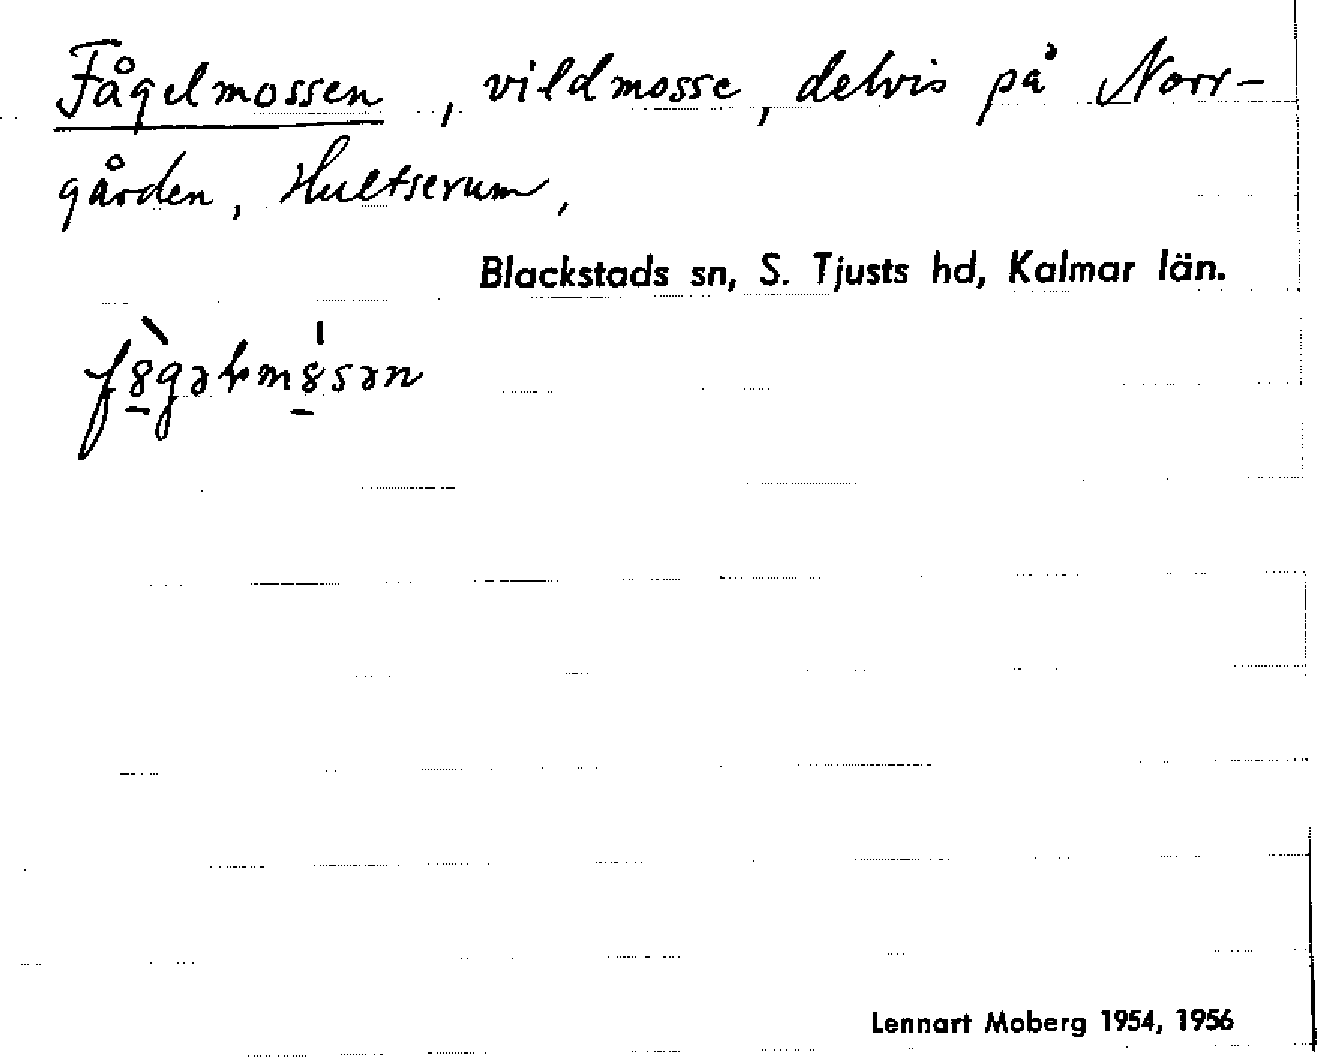 Fågelmossen, vildmosse, delvis på Norr-
gården, Hultserum,
Blackstads sn, S. Tjusts hd, Kalmar län.
Lennart Moberg 1954, 1956